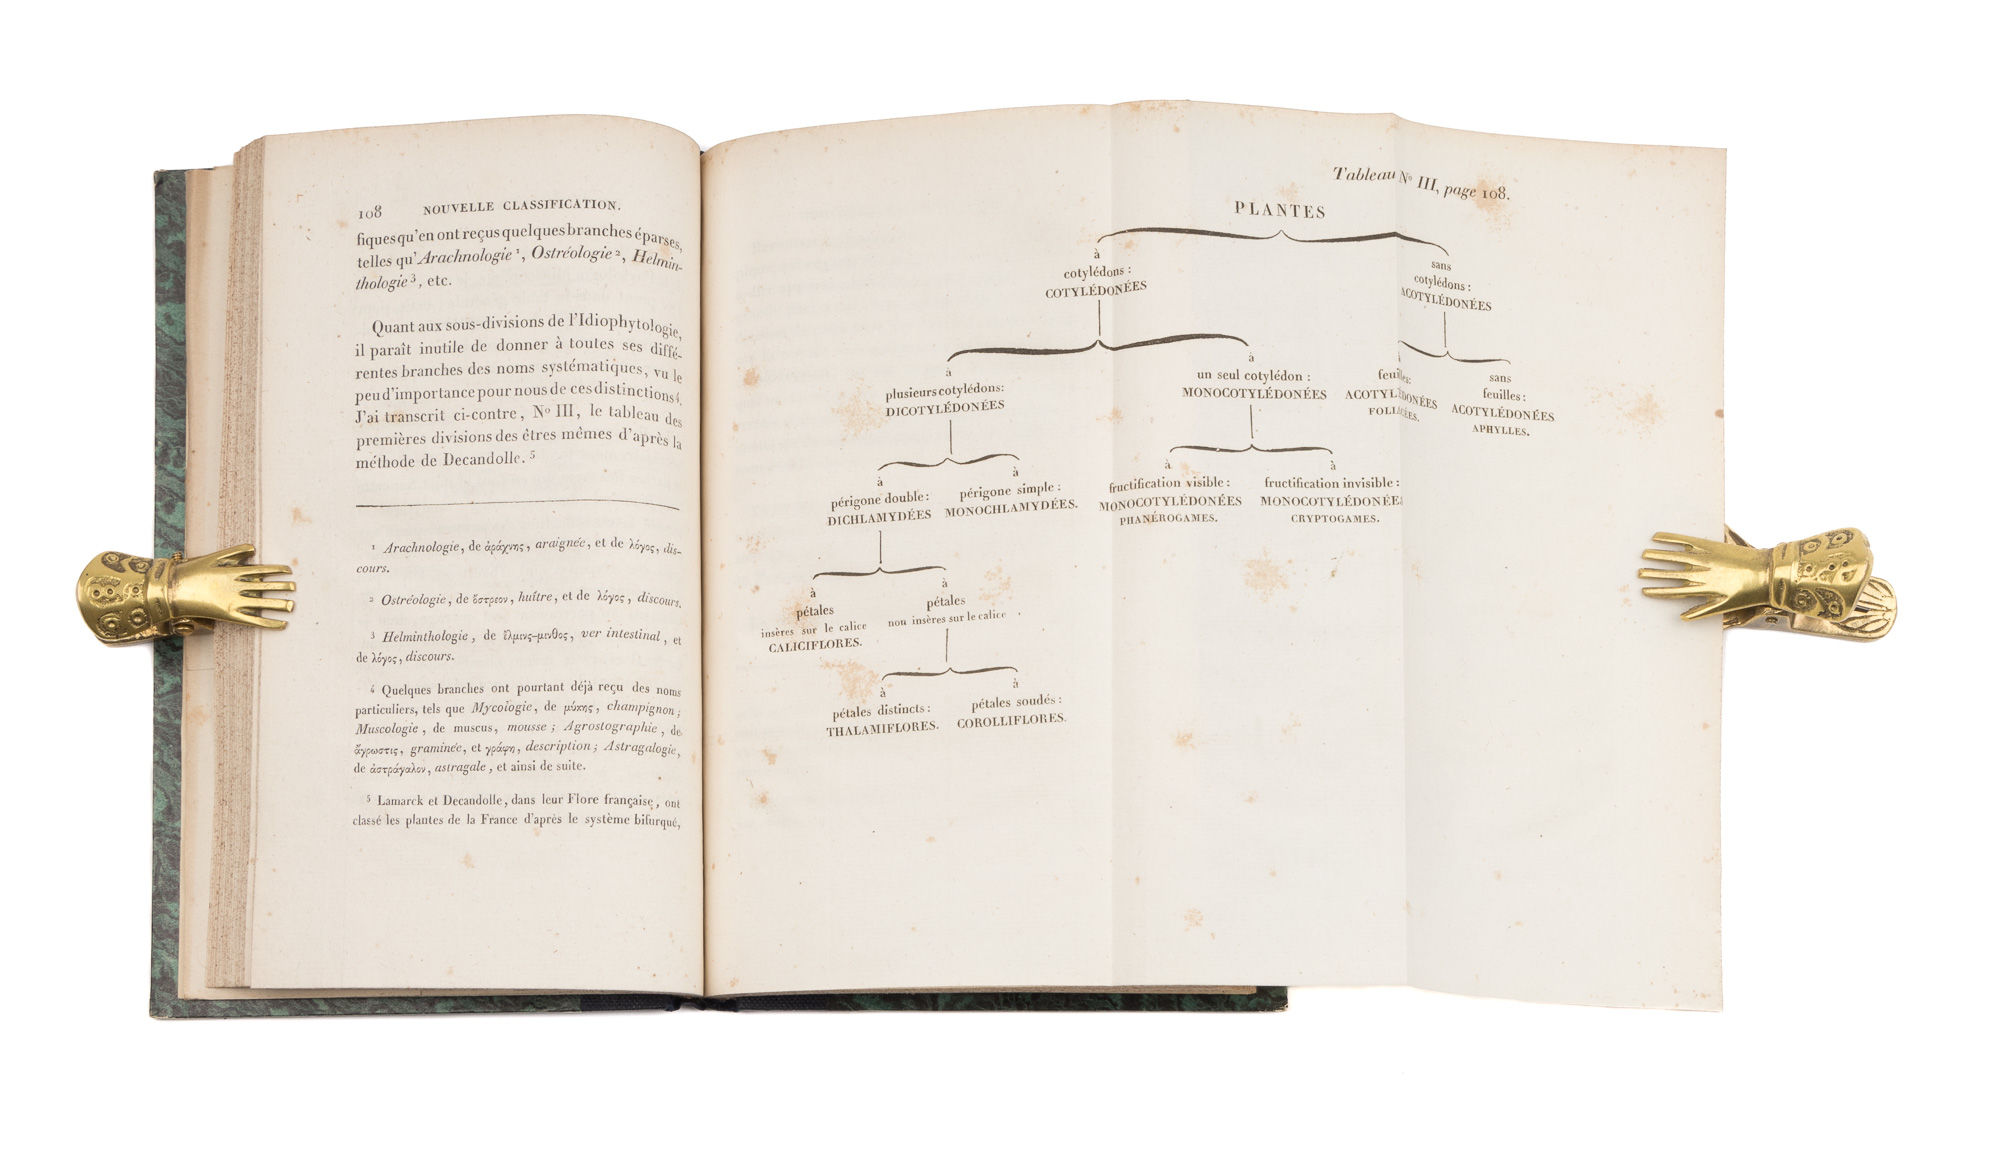 108 NOUVELLE CLASSIFICATION.
fiques qu'en ont reçus quelques branches éparses,
telles qu'Arachnologie ¹, Ostréologie ², Helmin-
thologie ³, etc.
Quant aux sous-divisions de l'Idiophytologie,
il paraît inutile de donner à toutes ses diffé-
rentes branches des noms systématiques, vu le
peu d'importance pour nous de ces distinctions ⁴.
J'ai transcrit ci-contre, Nº III, le tableau des
premières divisions des êtres mêmes d'après la
méthode de Decandolle. ⁵
¹ Arachnologie, de ἀράχνης, araignée, et de λόγος, dis-
cours.
² Ostréologie, de ὄστρεον, huître, et de λόγος, discours.
³ Helminthologie, de ἕλμινς-μινθος, ver intestinal, et
de λόγος, discours.
⁴ Quelques branches ont pourtant déjà reçu des noms
particuliers, tels que Mycologie, de μύκης, champignon;
Muscologie, de muscus, mousse; Agrostographie, de
ἄγρωστις, graminée, et γράφη, description; Astragalogie,
de ἀστράγαλον, astragale, et ainsi de suite.
⁵ Lamarck et Decandolle, dans leur Flore française, ont
classé les plantes de la France d'après le système bifurqué,
Tableau Nº III, page 108.
PLANTES
à
cotylédons :
COTYLÉDONÉES
sans
cotylédons :
ACOTYLÉDONÉES
à
plusieurs cotylédons:
DICOTYLÉDONÉES
à
un seul cotylédon :
MONOCOTYLÉDONÉES
à
feuilles:
ACOTYLÉDONÉES
FOLIACÉES.
sans
feuilles :
ACOTYLÉDONÉES
APHYLLES.
à
périgone double :
DICHLAMYDÉES
à
périgone simple :
MONOCHLAMYDÉES.
à
fructification visible :
MONOCOTYLÉDONÉES
PHANÉROGAMES.
à
fructification invisible :
MONOCOTYLÉDONÉES
CRYPTOGAMES.
à
pétales
insères sur le calice
CALICIFLORES.
à
pétales
non insères sur le calice
à
pétales distincts :
THALAMIFLORES.
à
pétales soudés :
COROLLIFLORES.